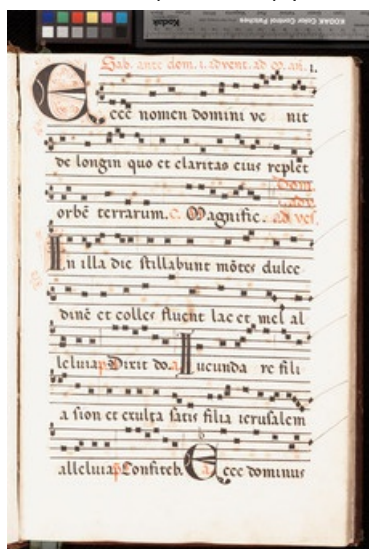 KODAK Color Control Patches
Sab. ante dom. i. advent. ad M. añ. 1.
Ecce nomen domini ve nit
de longin quo et claritas eius replet
Dom.
orbē terrarum. C. Magnific. ad ves.
In illa die stillabunt mōtes dulce
dinē et colles fluent lac et mel al
leluia p Dixit do. a Iucunda re fili
a sion et exulta satis filia ierusalem
alleluia p Confiteb. a Ecce dominus